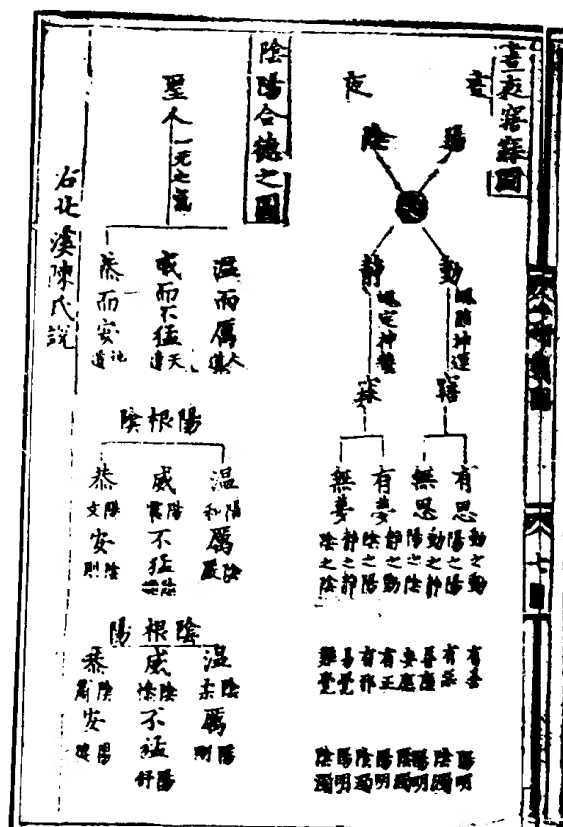 晝夜寤寐圖
晝 夜
陽 陰
動 靜
定神蟄
寤 寐
有思 無思 有夢 無夢
動之動
陽之陽
動之靜
陽之陰
靜之動
陰之陽
靜之靜
陰之陰
有善
有惡
善應
妄應
有正
有邪
易覺
難覺
陽明
陰濁
陽明
陰濁
陽明
陰濁
陽明
陰濁
陰陽合德之圖
聖人 一元之氣
溫而厲 人道
威而不猛 天道
恭而安 地道
陽根陰
溫 陽和 厲 陰嚴
威 陽震 不猛 陰
恭 陽文 安 陰則
陰根陽
溫 陰柔 厲 陽剛
威 陰慘 不猛 陽舒
恭 陰肅 安 陽
右北溪陳氏說
七